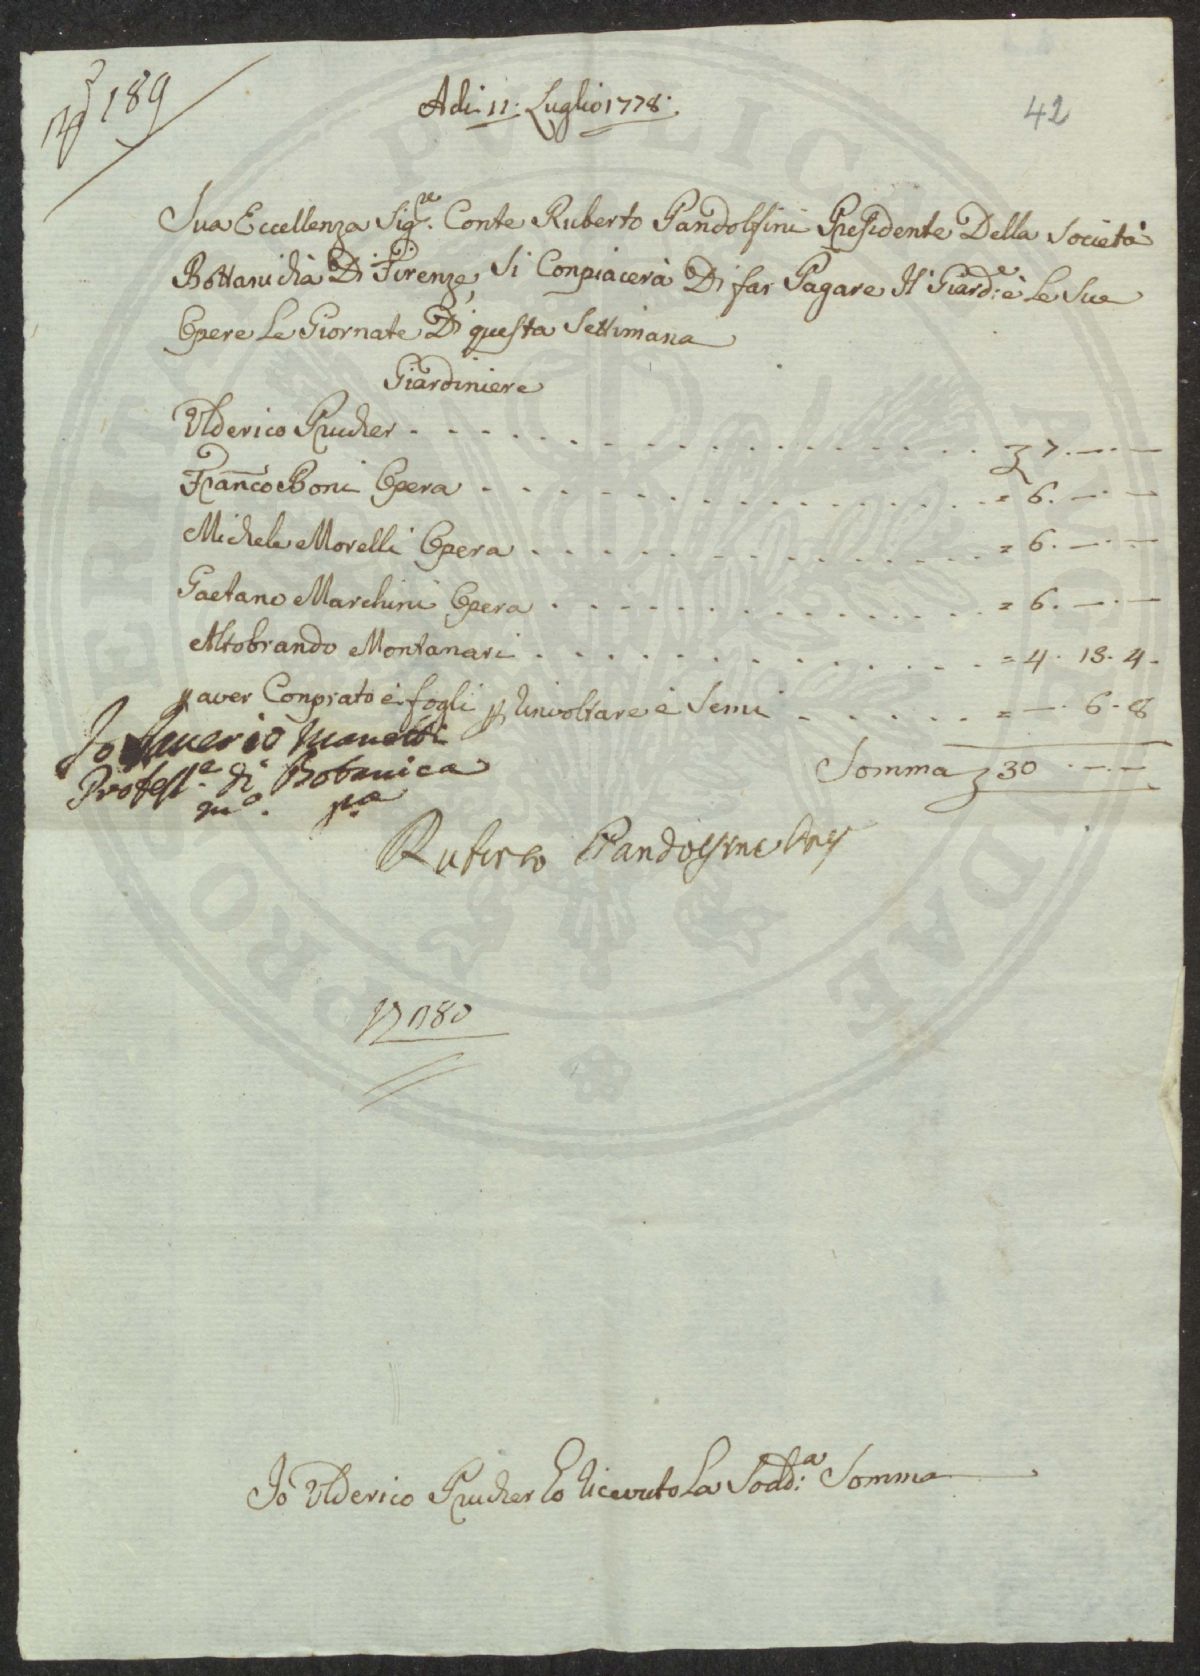 189
42
Adi 11: Luglio 1778.
Sua Eccellenza Sig.re Conte Ruberto Pandolfini Presidente Della Società
Bottanichà Di Firenze, Si Conpiacerà Di far Pagare Il Giard.e è Le Sue
Opere Le Giornate Di questa Settimana
Giardiniere
Ulderico Prucher . . . . . . . . . . . . . . . . 7. —. —
Franco Boni Opera . . . . . . . . . . . . . . . = 6. —. —
Michele Morelli Opera . . . . . . . . . . . . . = 6. —. —
Gaetano Marchini Opera . . . . . . . . . . . . = 6. —. —
Altobrando Montanari . . . . . . . . . . . . . = 4. 13. 4.
p aver Conprato è fogli p Rinvoltare è Semi . . . . . = —. 6. 8
Somma 30 . —. —
Io Saverio Manetti
Profess.e di Botanica
m.o p.a
Ruberto Pandolfini
180
Io Ulderico Prucher ho Ricevuto La Sodd:a Somma
PUBLICAE
PRO